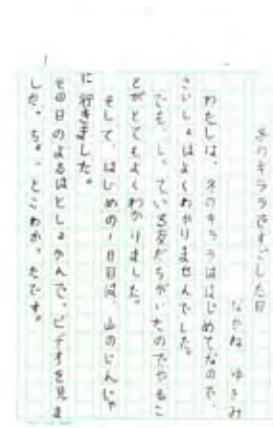 冬のキララですごした日
なかね ゆきみ
わたしは、冬のキララははじめてなので、
さいしょはよくわかりませんでした。
でも、しっている友だちがいたのでやるこ
とがとてもよくわかりました。
そして、はじめの1日目は、山のじんじゃ
に行きました。
その日のよるはとしょかんで、ビデオを見ま
した。ちょっとこわかったです。